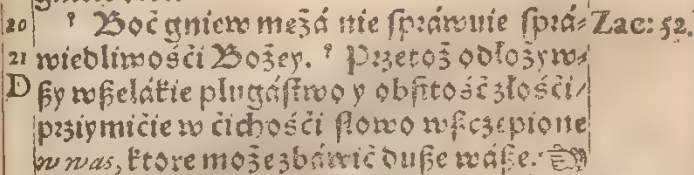 20 ¶ Boć gniew mężá nie spráwuie sprá- Zac: 52.
21 wiedliwośći Bożey. ¶ Przetoż odłożyw-
D szy wszelákie plugástwo y obfitość złośći/
przyimićie w ćichośći słowo wszczepione
w was, ktore może zbáwić dusze wásze.